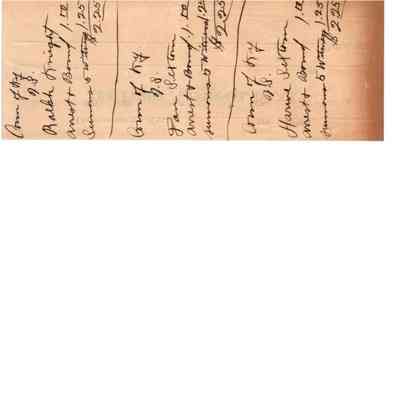 Com of Ky
vs.
Ralph Knight
Arrest & Bond 1.00
Summons 5 Witness 1.25
$2.25
Com of Ky
vs.
Dan Sexton
Arrest & Bond 1.00
Summons 5 Witness 1.25
$2.25
Com of Ky
vs.
Sexton
Arrest & Bond 1.00
Summons 5 Witness 1.25
$2.25